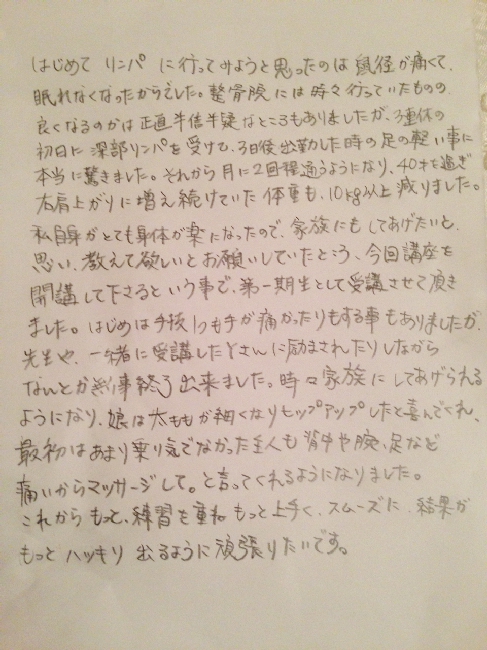 はじめて リンパ に行ってみようと思ったのは 鼠径が痛くて、
眠れなくなったからでした。整骨院には時々行っていたものの
良くなるのかは正直半信半疑なところもありましたが、3連休の
初日に 深部リンパを受けて、3日後出勤した時の足の軽い事に
本当に驚きました。それから月に2回程通うようになり、40才を過ぎ
右肩上がりに増え続けていた 体重も、10kg以上 減りました。
私自身がとても身体が楽になったので、家族にもしてあげたいと、
思い、教えて欲しいとお願いしていたところ、今回講座を
開講して下さるという事で、第一期生として受講させて頂き
ました。はじめは手技
も手が痛かったりもする事もありましたが、
先生や、一緒に受講したYさんに励まされたりしながら
なんとか無事終了出来ました。時々家族にしてあげられる
ようになり、娘は太ももが細くなりヒップアップしたと喜んでくれ、
最初はあまり乗り気でなかった主人も背中や腕、足など
痛いからマッサージして。と言ってくれるようになりました。
これからもっと、練習を重ね もっと上手く、スムーズに、結果が
もっと ハッキリ 出るように頑張りたいです。